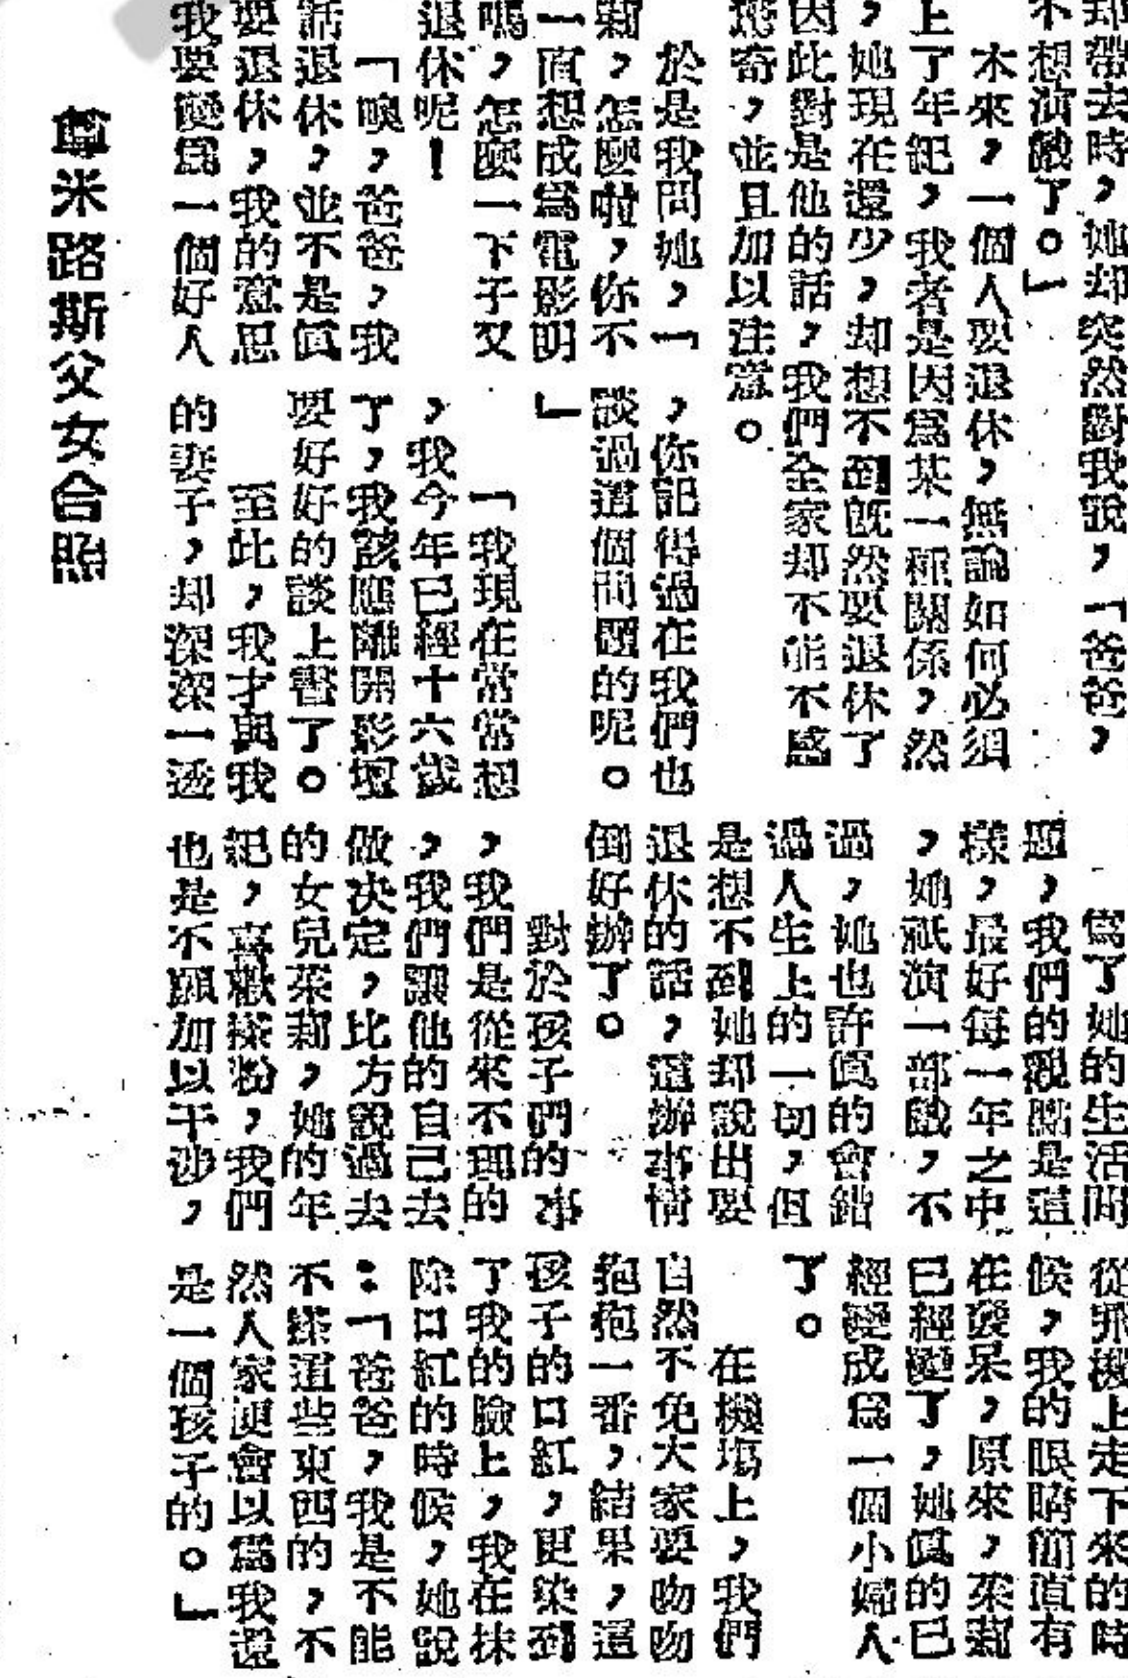 却帶去時，她却突然對我說，「爸爸，
不想演戲了。」
本來，一個人要退休，無論如何必須
上了年紀，我者是因爲某一種關係，然
，她現在還少，却想不到既然要退休了
因此對是他的話，我們全家却不能不感
驚奇，並且加以注意。
於是我問她，「
莉，怎麼啦，你不
一直想成爲電影明
嗎，怎麼一下子又
退休呢！
「噢，爸爸，我
話退休，並不是眞
要退休，我的意思
我要變爲一個好人
，你記得過在我們也
談過這個問題的呢。
」
「我現在常常想
，我今年已經十六歲
了，我該應離開影壇
要好好的談上醫了。
至此，我才與我
的妻子，却深深一透
爲了她的生活問
題，我們的觀點是這
樣，最好每一年之中
，她祇演一部戲，不
過，她也許眞的會錯
過人生上的一切，但
是想不到她却說出要
退休的話，這辦事情
倒好辦了。
對於孩子們的事
，我們是從來不理的
，我們讓他的自己去
做決定，比方說過去
的女兒茱莉，她的年
紀，喜歡搽粉，我們
也是不願加以干涉，
從飛機上走下來的時
候，我的眼睛簡直有
在發呆，原來，茱莉
已經變了，她眞的已
經變成爲一個小婦人
了。
在機塲上，我們
自然不免大家要吻吻
抱抱一番，結果，這
孩子的口紅，更染到
了我的臉上，我在抹
除口紅的時候，她說
：「爸爸，我是不能
不搽這些東西的，不
然人家便會以爲我還
是一個孩子的。」
尊米路斯父女合照